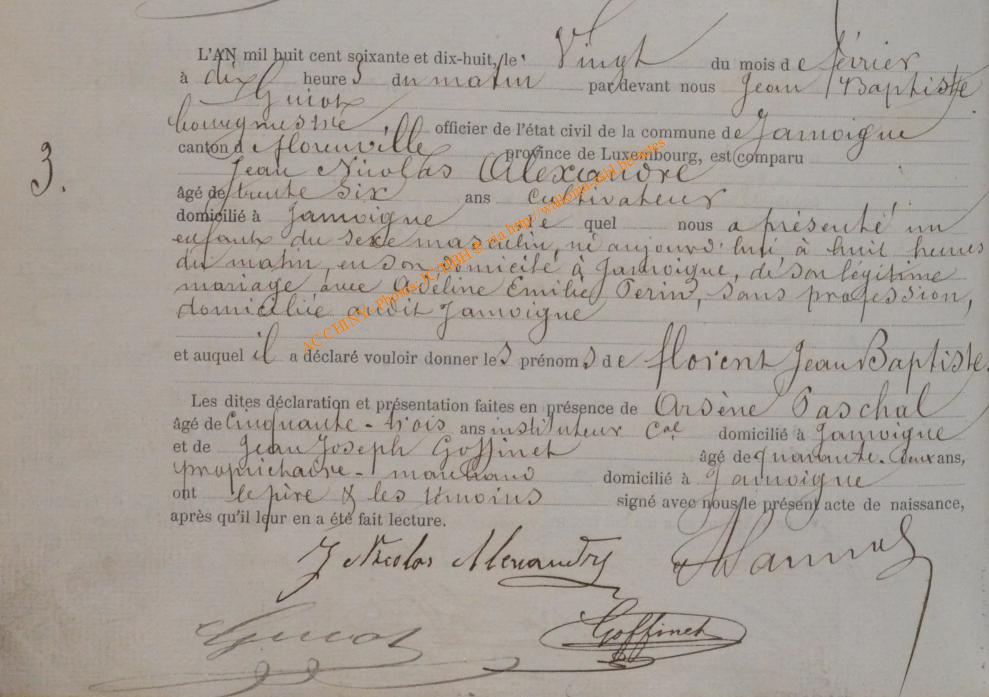 L'AN mil huit cent soixante et dix-huit, le Vingt du mois de février
à dix heures du matin par devant nous Jean Baptiste
Guiot
bourgmestre officier de l'état civil de la commune de Jamoigne
3.
canton de florenville province de Luxembourg, est comparu
Jean Nicolas Alexandre
âgé de trente six ans cultivateur
domicilié à Jamoigne le quel nous a présenté un
enfant du sexe masculin, né aujourd'hui à huit heures
du matin, en son domicile à Jamoigne, de son légitime
mariage avec Adeline Emilie Perin, sans profession,
domiciliée audit Jamoigne
ACCHINY - Photos JC/DBH © via http://wallonia.asbl.
et auquel il a déclaré vouloir donner les prénoms de florent Jean Baptiste.
Les dites déclaration et présentation faites en présence de Arsène Paschal
âgé de Cinquante-trois ans instituteur Cal domicilié à Jamoigne
et de Jean Joseph Goffinet âgé de quarante-deux ans,
propriétaire-marchand domicilié à Jamoigne
ont le père & les témoins signé avec nous le présent acte de naissance,
après qu'il leur en a été fait lecture.
J Nicolas Alexandre
Guiot Goffinet